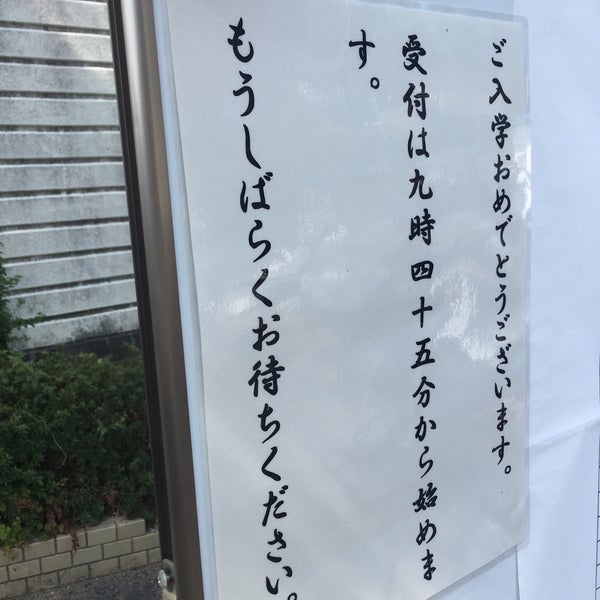 ご入学おめでとうございます。
受付は九時四十五分から始めま
す。
もうしばらくお待ちください。